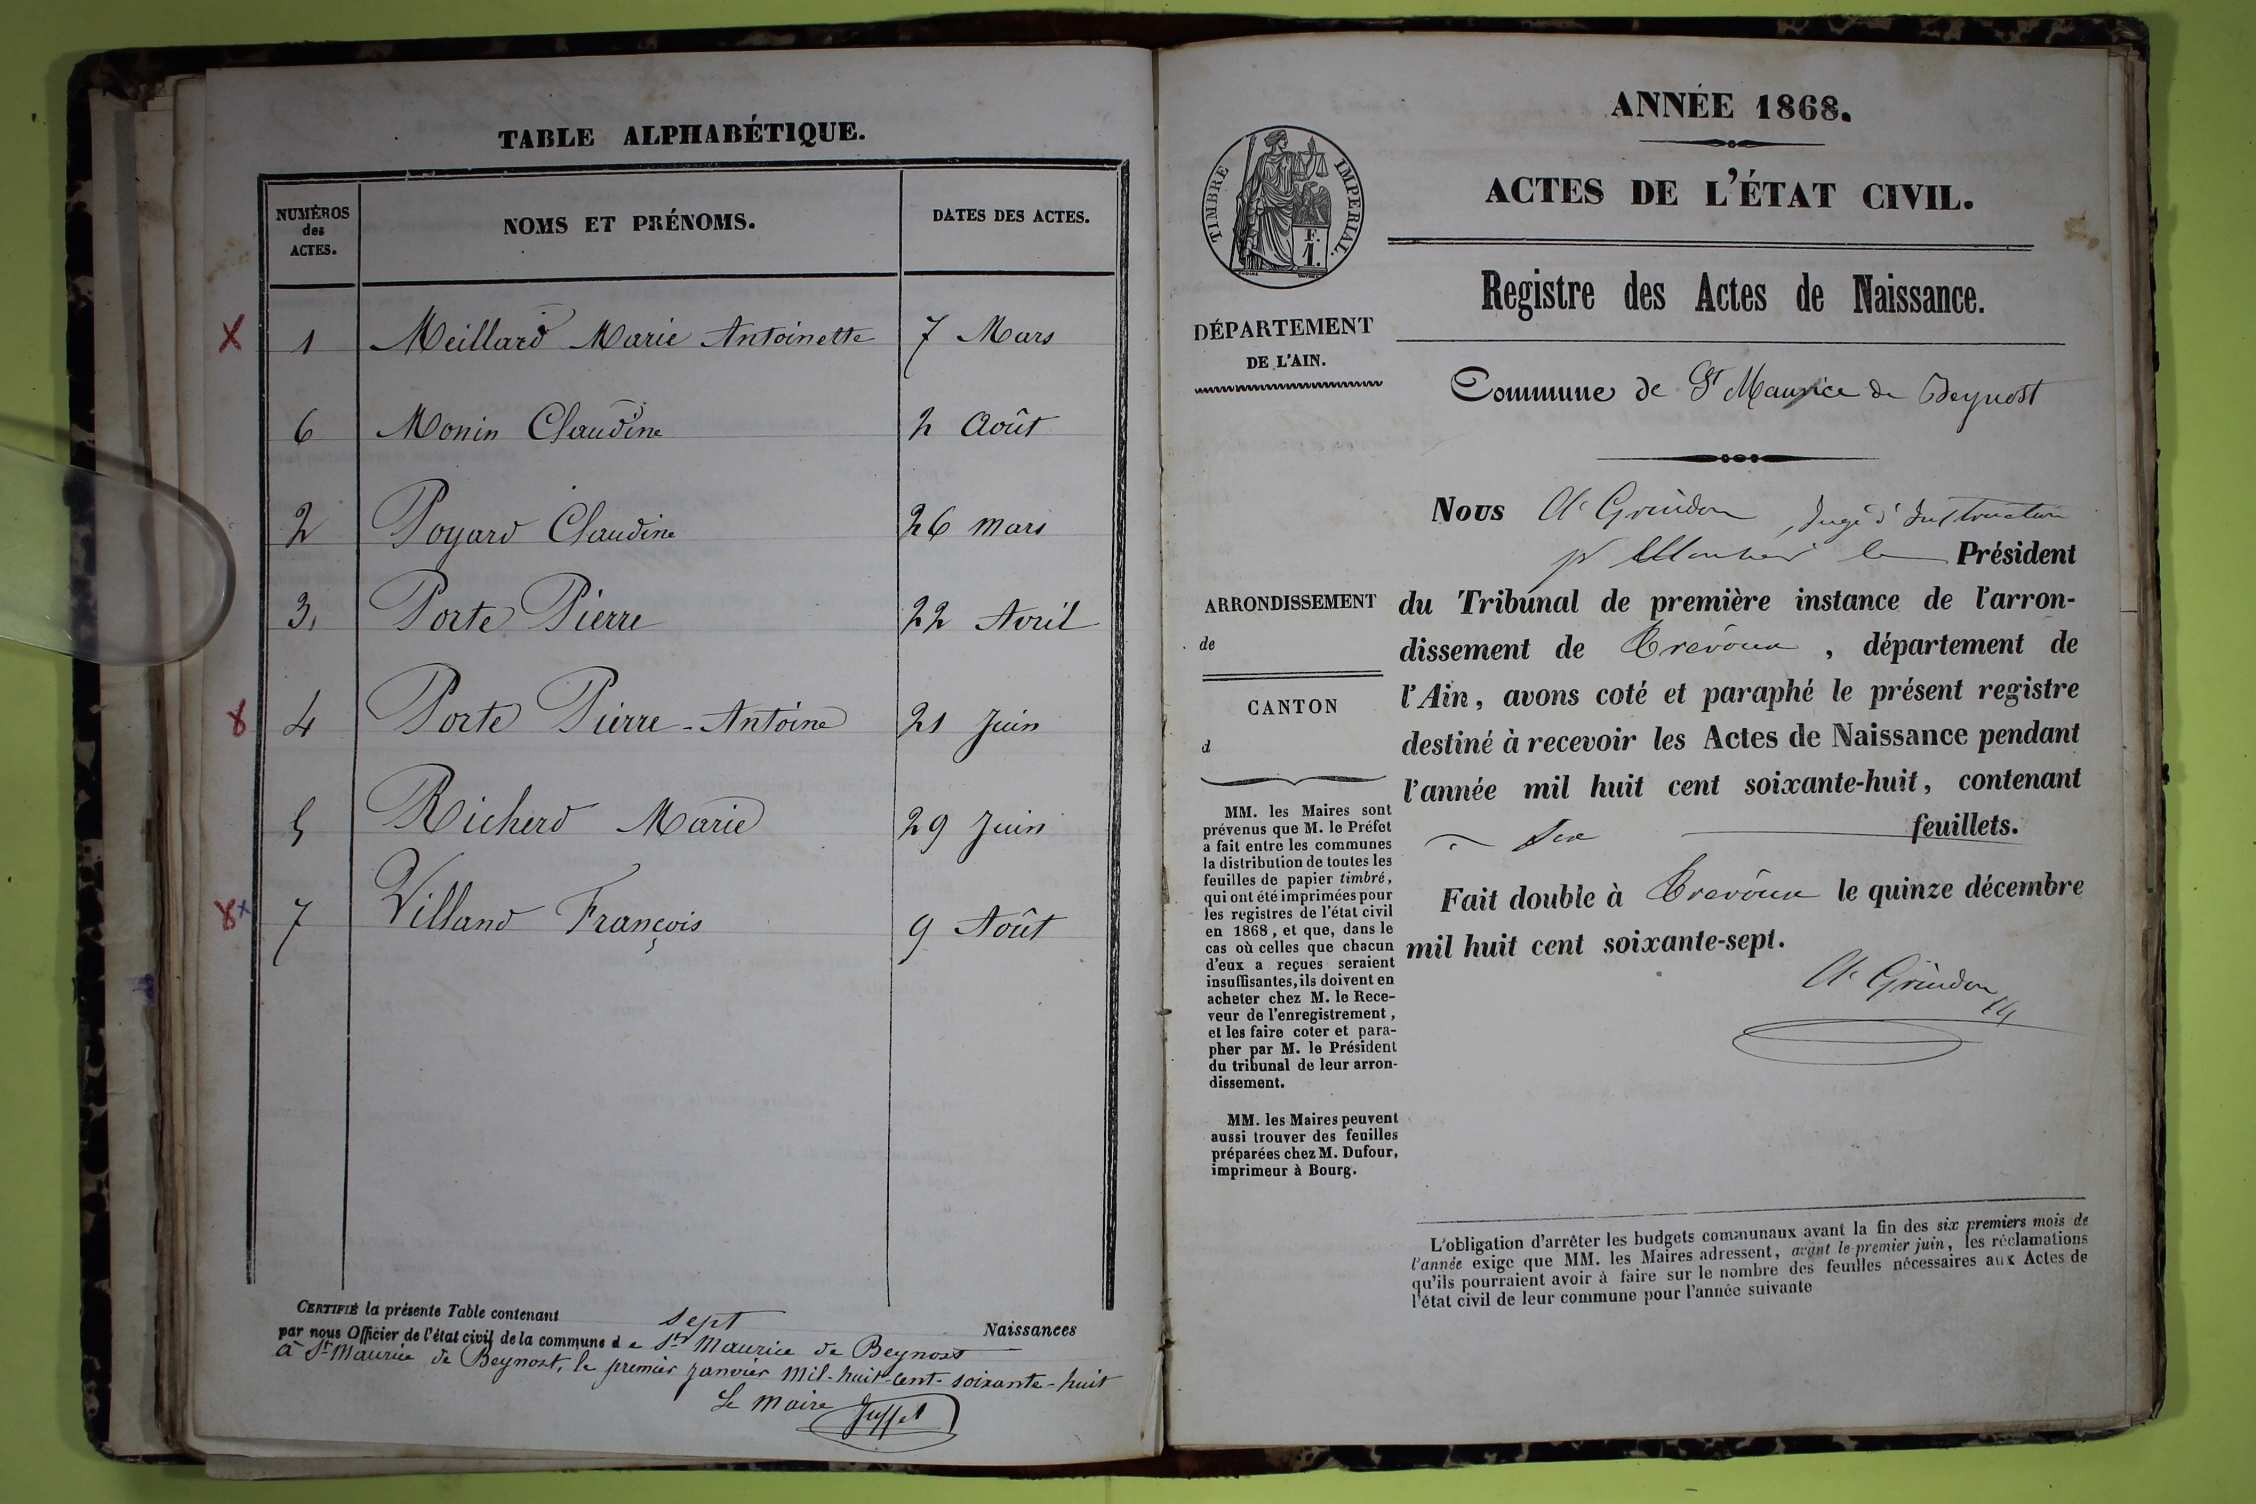 TABLE ALPHABÉTIQUE.
NUMÉROS des ACTES.
NOMS ET PRÉNOMS.
DATES DES ACTES.
1 Meillard Marie Antoinette 7 Mars
6 Monin Claudine 2 Août
2 Poyard Claudine 26 mars
3 Porte Pierre 22 Avril
4 Porte Pierre-Antoine 21 Juin
5 Richerd Marie 29 Juin
7 Villand François 9 Août
CERTIFIÉ la présente Table contenant sept Naissances
par nous Officier de l'état civil de la commune d e St Maurice de Beynost
à St Maurice de Beynost, le premier janvier mil-huit-cent-soixante-huit
Le maire
ANNÉE 1868.
ACTES DE L'ÉTAT CIVIL.
TIMBRE IMPERIAL.
F.
1.
Registre des Actes de Naissance.
DÉPARTEMENT
DE L'AIN.
Commune de St Maurice de Beynost
Nous Grindon, Juge d'Instruction
le Président
ARRONDISSEMENT
de
CANTON
d
du Tribunal de première instance de l'arron-
dissement de Trevoux, département de
l'Ain, avons coté et paraphé le présent registre
destiné à recevoir les Actes de Naissance pendant
l'année mil huit cent soixante-huit, contenant
six feuillets.
Fait double à Trevoux le quinze décembre
mil huit cent soixante-sept.
Grindon
MM. les Maires sont
prévenus que M. le Préfet
a fait entre les communes
la distribution de toutes les
feuilles de papier timbré,
qui ont été imprimées pour
les registres de l'état civil
en 1868, et que, dans le
cas où celles que chacun
d'eux a reçues seraient
insuffisantes, ils doivent en
acheter chez M. le Rece-
veur de l'enregistrement,
et les faire coter et para-
pher par M. le Président
du tribunal de leur arron-
dissement.
MM. les Maires peuvent
aussi trouver des feuilles
préparées chez M. Dufour,
imprimeur à Bourg.
L'obligation d'arrêter les budgets communaux avant la fin des six premiers mois de
l'année exige que MM. les Maires adressent, avant le premier juin, les réclamations
qu'ils pourraient avoir à faire sur le nombre des feuilles nécessaires aux Actes de
l'état civil de leur commune pour l'année suivante